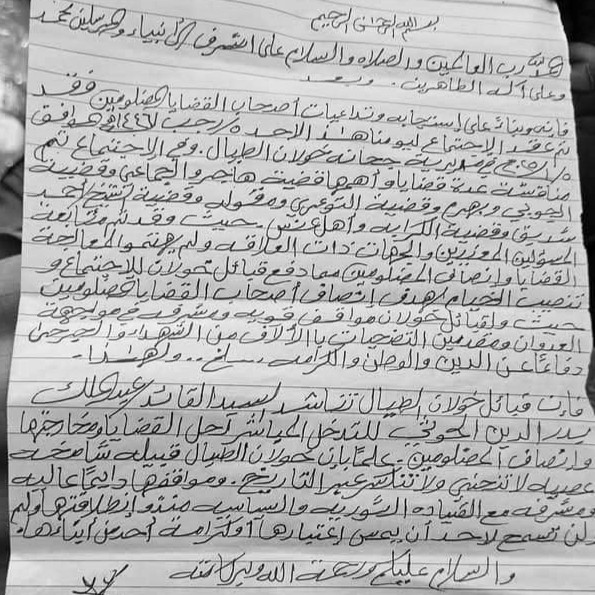 بسم الله الرحمن الرحيم
الحمد لله رب العالمين والصلاه والسلام على اشرف الأنبياء والمرسلين محمد
وعلى آله الطاهرين . وبعد
فإنه وبناءً على إستجابه وتداعيات أصحاب القضايا المظلومين فقد
تم عقد الاجتماع ليومنا هذا الاحد ٥/رجب ١٤٤٦هـ الموافق
٢٠٢٥/١/٥م في مديرية جحانه خولان الطيال. وفي الاجتماع تم
مناقشة عدة قضايا وأهمها قضية هاجر والجماعي وقضية
وبهرم وقضية وقضية الشيخ أحمد
وقضية وأهل حيث وقد تم متابعة
المسؤلين والجهات ذات العلاقه ولم يهتموا لمعالجة
القضايا وإنصاف المظلومين مما دفع قبائل خولان للاجتماع و
تنصيب الخيام بهدف إنصاف أصحاب القضايا المظلومين
حيث ولقبائل خولان مواقف قويه ومشرفه في مواجهة
العدوان ومقدمين التضحيات بالألاف من الشهداء والجرحى
دفاعاً عن الدين والوطن والكرامه .. ولهذا .
فإن قبائل خولان الطيال تناشد لسيد القائد عبدالملك
بدر الدين الحوثي للتدخل المباشر لحل القضايا ومخارجها
وإنصاف المظلومين . علماً بإن خولان الطيال قبيله شامخه
عصيه لا تنحني ولا تنكسر عبر التاريخ . ومواقفها دايماً عاليه
ومشرفه مع القياده الثوريه والسياسيه منذو إنطلاقتها ولم
ولن تسمح لاحد أن يمس إعتبارها أو كرامة أحد من أبناءها.
والسلام عليكم ورحمة الله وبركاته